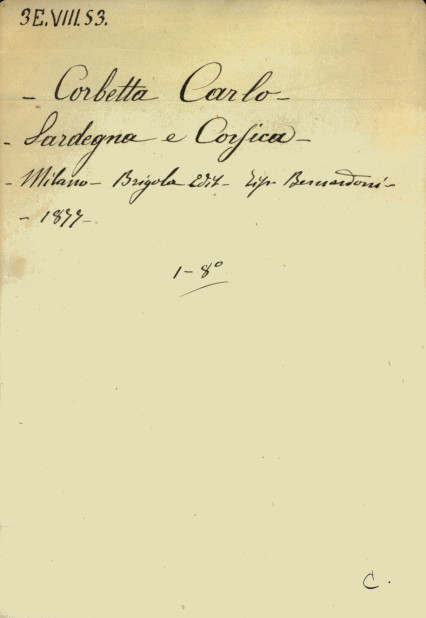 3E.VIII.53.
- Corbetta Carlo -
- Sardegna e Corsica -
- Milano - Brigola Edit - Tip. Bernardoni -
- 1877 -
1 - 8°
C.